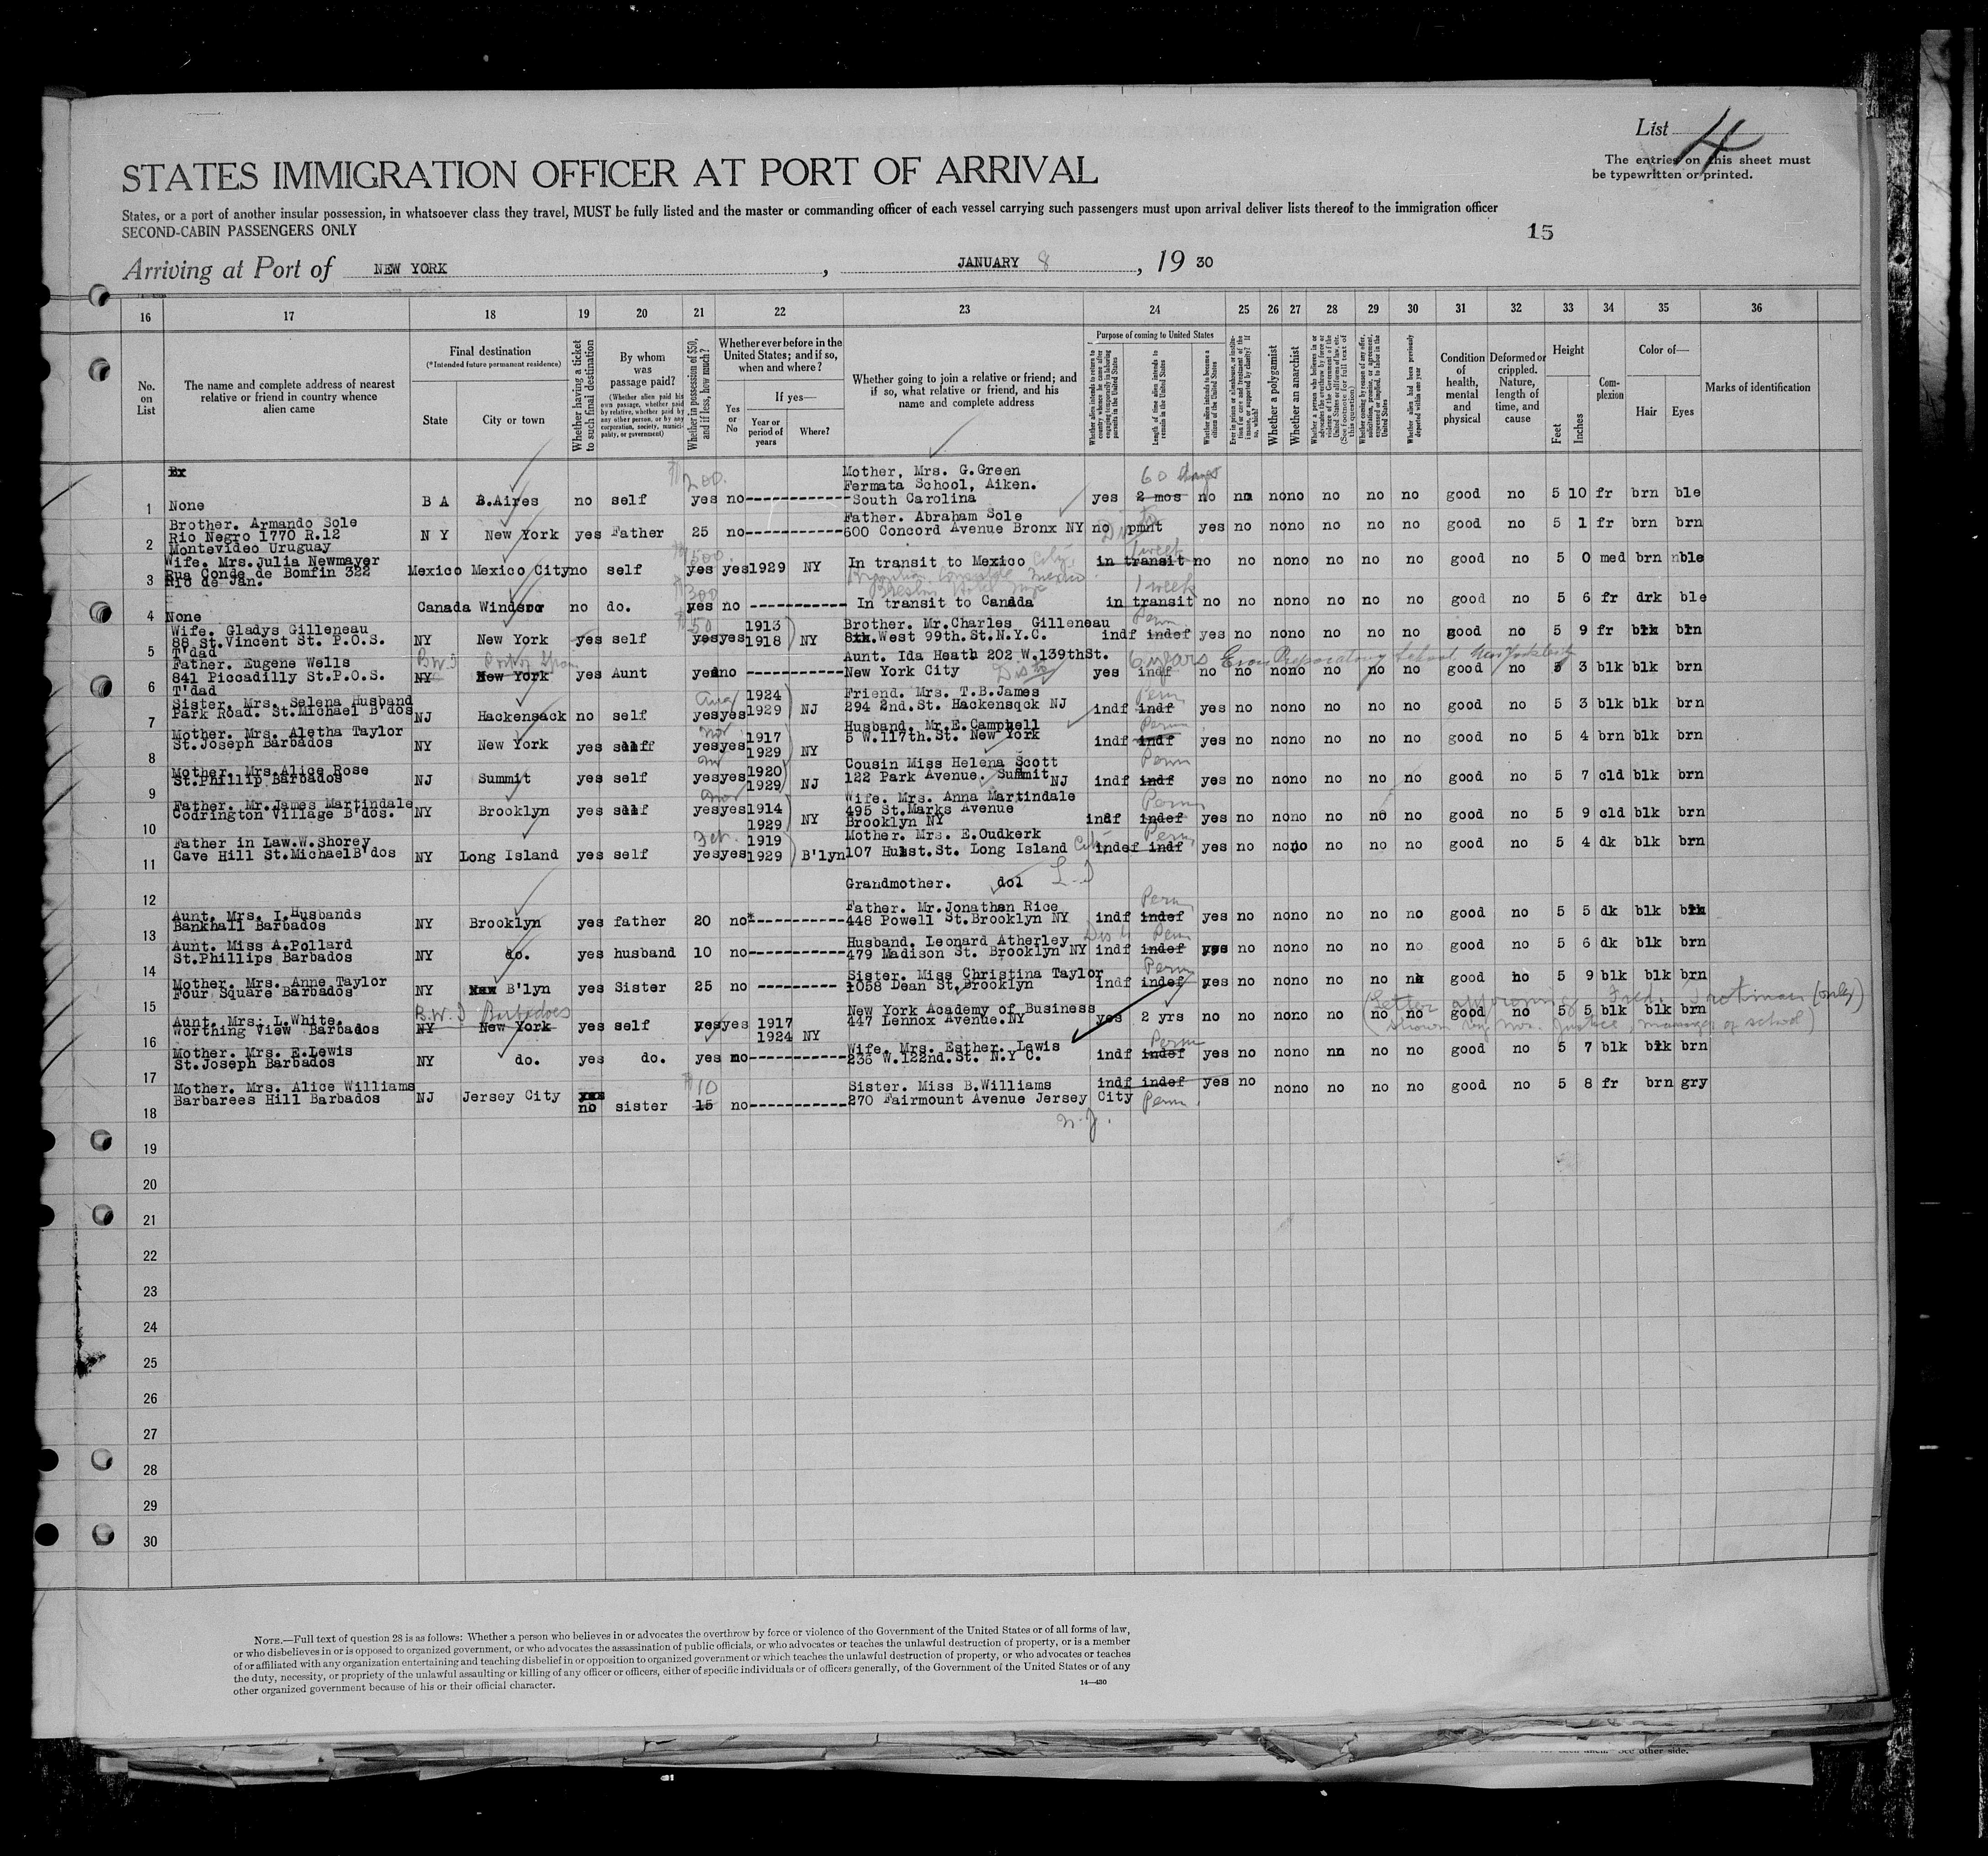 List 4
The entries on this sheet must
be typewritten or printed.
STATES IMMIGRATION OFFICER AT PORT OF ARRIVAL
States, or a port of another insular possession, in whatsoever class they travel, MUST be fully listed and the master or commanding officer of each vessel carrying such passengers must upon arrival deliver lists thereof to the immigration officer
SECOND-CABIN PASSENGERS ONLY
15
Arriving at Port of NEW YORK, JANUARY 8, 19 30
16 17 18 19 20 21 22 23 24 25 26 27 28 29 30 31 32 33 34 35 36
No. on List
The name and complete address of nearest relative or friend in country whence alien came
Final destination
(*Intended future permanent residence)
State
City or town
Whether having a ticket to such final destination
By whom was passage paid?
(Whether alien paid his own passage, whether paid by relative, whether paid by any other person, or by any corporation, society, municipality, or government)
Whether in possession of $50, and if less, how much?
Whether ever before in the United States; and if so, when and where?
Yes or No
If yes—
Year or period of years
Where?
Whether going to join a relative or friend; and if so, what relative or friend, and his name and complete address
Purpose of coming to United States
Length of time alien intends to remain in the United States
Whether alien intends to become a citizen of the United States
Whether a polygamist
Whether an anarchist
Whether alien had been previously deported within one year
Condition of health, mental and physical
Deformed or crippled. Nature, length of time, and cause
Height
Feet
Inches
Complexion
Color of—
Hair
Eyes
Marks of identification
$200. Mother, Mrs. G.Green 60 days
Fermata School, Aiken.
1 None B A B.Aires no self yes no South Carolina yes 2 mos no no nono no no no good no 5 10 fr brn ble
Brother. Armando Sole Father. Abraham Sole
Rio Negro 1770 R.12 N Y New York yes Father 25 no 600 Concord Avenue Bronx NY no pmnt yes no nono no no no good no 5 1 fr brn brn
2 Montevideo Uruguay
Wife. Mrs.Julia Newmayer $500. 1 week
Rua Conde de Bomfin 322 Mexico Mexico City no self yes yes 1929 NY In transit to Mexico City in transit no no nono no no no good no 5 0 med brn ble
3 Rio de Jan.
$300 1 week
4 None Canada Windsor no do. yes no In transit to Canada in transit no no nono no no no good no 5 6 fr drk ble
Wife. Gladys Gilleneau $50 1913 Brother. Mr.Charles Gilleneau Perm
88 St.Vincent St. P.O.S. NY New York yes self yes yes 1918 NY West 99th.St.N.Y.C. indf indef yes no nono no no no good no 5 9 fr blk brn
5 T'dad
Father. Eugene Wells B.W.I Aunt. Ida Heath 202 W.139thSt. 6 years
841 Piccadilly St.P.O.S. NY New York yes Aunt yes no New York City yes indf no no nono no no no good no 5 3 blk blk brn
6 T'dad
Sister. Mrs. Selena Husband Aug 1924 Friend. Mrs. T.B.James Perm
7 Park Road. St.Michael B'dos NJ Hackensack no self yes yes 1929 NJ 294 2nd.St. Hackensqck NJ indf indf yes no nono no no no good no 5 3 blk blk brn
Mother. Mrs. Aletha Taylor Nov 1917 Husband. Mr.E.Campbell Perm
8 St.Joseph Barbados NY New York yes self yes yes 1929 NY 5 W.117th.St. New York indf indf yes no nono no no no good no 5 4 brn blk brn
Mother. Mrs.Alice Rose 1920 Cousin Miss Helena Scott Perm
9 St.Phillip Barbados NJ Summit yes self yes yes 1929 NJ 122 Park Avenue. Summit NJ indf indf yes no nono no no no good no 5 7 cld blk brn
Father. Mr.James Martindale Nov Wife. Mrs. Anna Martindale Perm
Codrington Village B'dos. NY Brooklyn yes self yes yes 1914 NY 495 St.Marks Avenue indf indef yes no nono no no no good no 5 9 cld blk brn
10 1929 Brooklyn NY
Father in Law.W.Shorey Feb. 1919 Mother. Mrs. E.Oudkerk Perm
11 Cave Hill St.MichaelB'dos NY Long Island yes self yes yes 1929 B'lyn 107 Hulst.St. Long Island City indef indf yes no nono no no no good no 5 4 dk blk brn
12 Grandmother. do1 L.I
Aunt. Mrs. I.Husbands Father. Mr.Jonathan Rice Perm
13 Bankhall Barbados NY Brooklyn yes father 20 no 448 Powell St.Brooklyn NY indf indef yes no nono no no no good no 5 5 dk blk
Aunt. Miss A.Pollard Husband. Leonard Atherley Perm
14 St.Phillips Barbados NY do. yes husband 10 no 479 Madison St. Brooklyn NY indf indef yes no nono no no no good no 5 6 dk blk brn
Mother. Mrs. Anne Taylor Sister. Miss Christina Taylor Perm
15 Four Square Barbados NY B'lyn yes Sister 25 no 1058 Dean St.Brooklyn indf indef yes no nono no no no good no 5 9 blk blk brn
B.W.I Barbadoes New York Academy of Business
Aunt. Mrs: L.White. NY New York yes self yes yes 1917 447 Lennox Avenue.NY yes 2 yrs no no nono no no no good no 5 5 blk blk brn
16 Worthing View Barbados 1924 NY
Mother. Mrs. E.Lewis Wife. Mrs. Esther. Lewis Perm
17 St.Joseph Barbados NY do. yes do. yes no 235 W.122nd.St. N.Y C. indf indef yes no nono no no no good no 5 7 blk blk brn
Mother. Mrs. Alice Williams $10 Sister. Miss B.Williams indf indef yes no nono no no no good no 5 8 fr brn gry
18 Barbarees Hill Barbados NJ Jersey City no sister 15 no 270 Fairmount Avenue Jersey City Perm.
N.J.
19
20
21
22
23
24
25
26
27
28
29
30
NOTE.—Full text of question 28 is as follows: Whether a person who believes in or advocates the overthrow by force or violence of the Government of the United States or of all forms of law,
or who disbelieves in or is opposed to organized government, or who advocates the assassination of public officials, or who advocates or teaches the unlawful destruction of property, or is a member
of or affiliated with any organization entertaining and teaching disbelief in or opposition to organized government or which teaches the unlawful destruction of property, or who advocates or teaches
the duty, necessity, or propriety of the unlawful assaulting or killing of any officer or officers, either of specific individuals or of officers generally, of the Government of the United States or of any
other organized government because of his or their official character.
14—430
See other side.